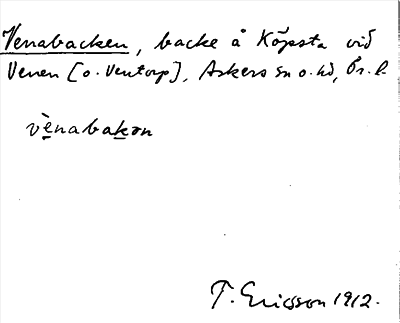 Venabacken, backe å Köpsta vid
Venen [o. Ventorp], Askers sn o. hd, Ör. l.
vènabakən
T. Ericsson 1912.